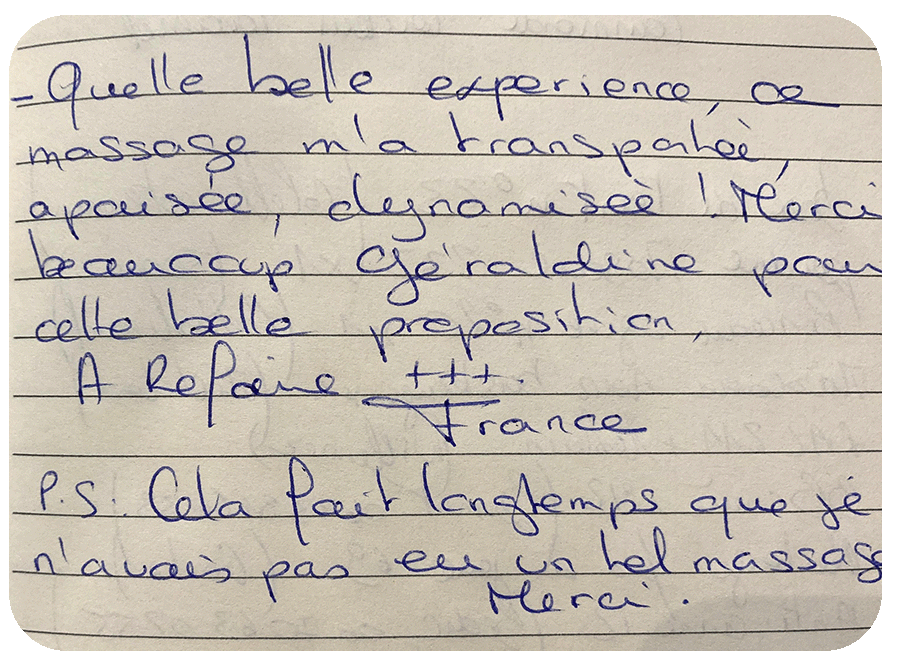 - Quelle belle experience, ce
massage m'a transportée,
apaisée, dynamisée ! Merci
beaucoup Géraldine pour
cette belle proposition,
A Refaire +++.
France
P.S. Cela fait longtemps que je
n'avais pas eu un tel massage
Merci.